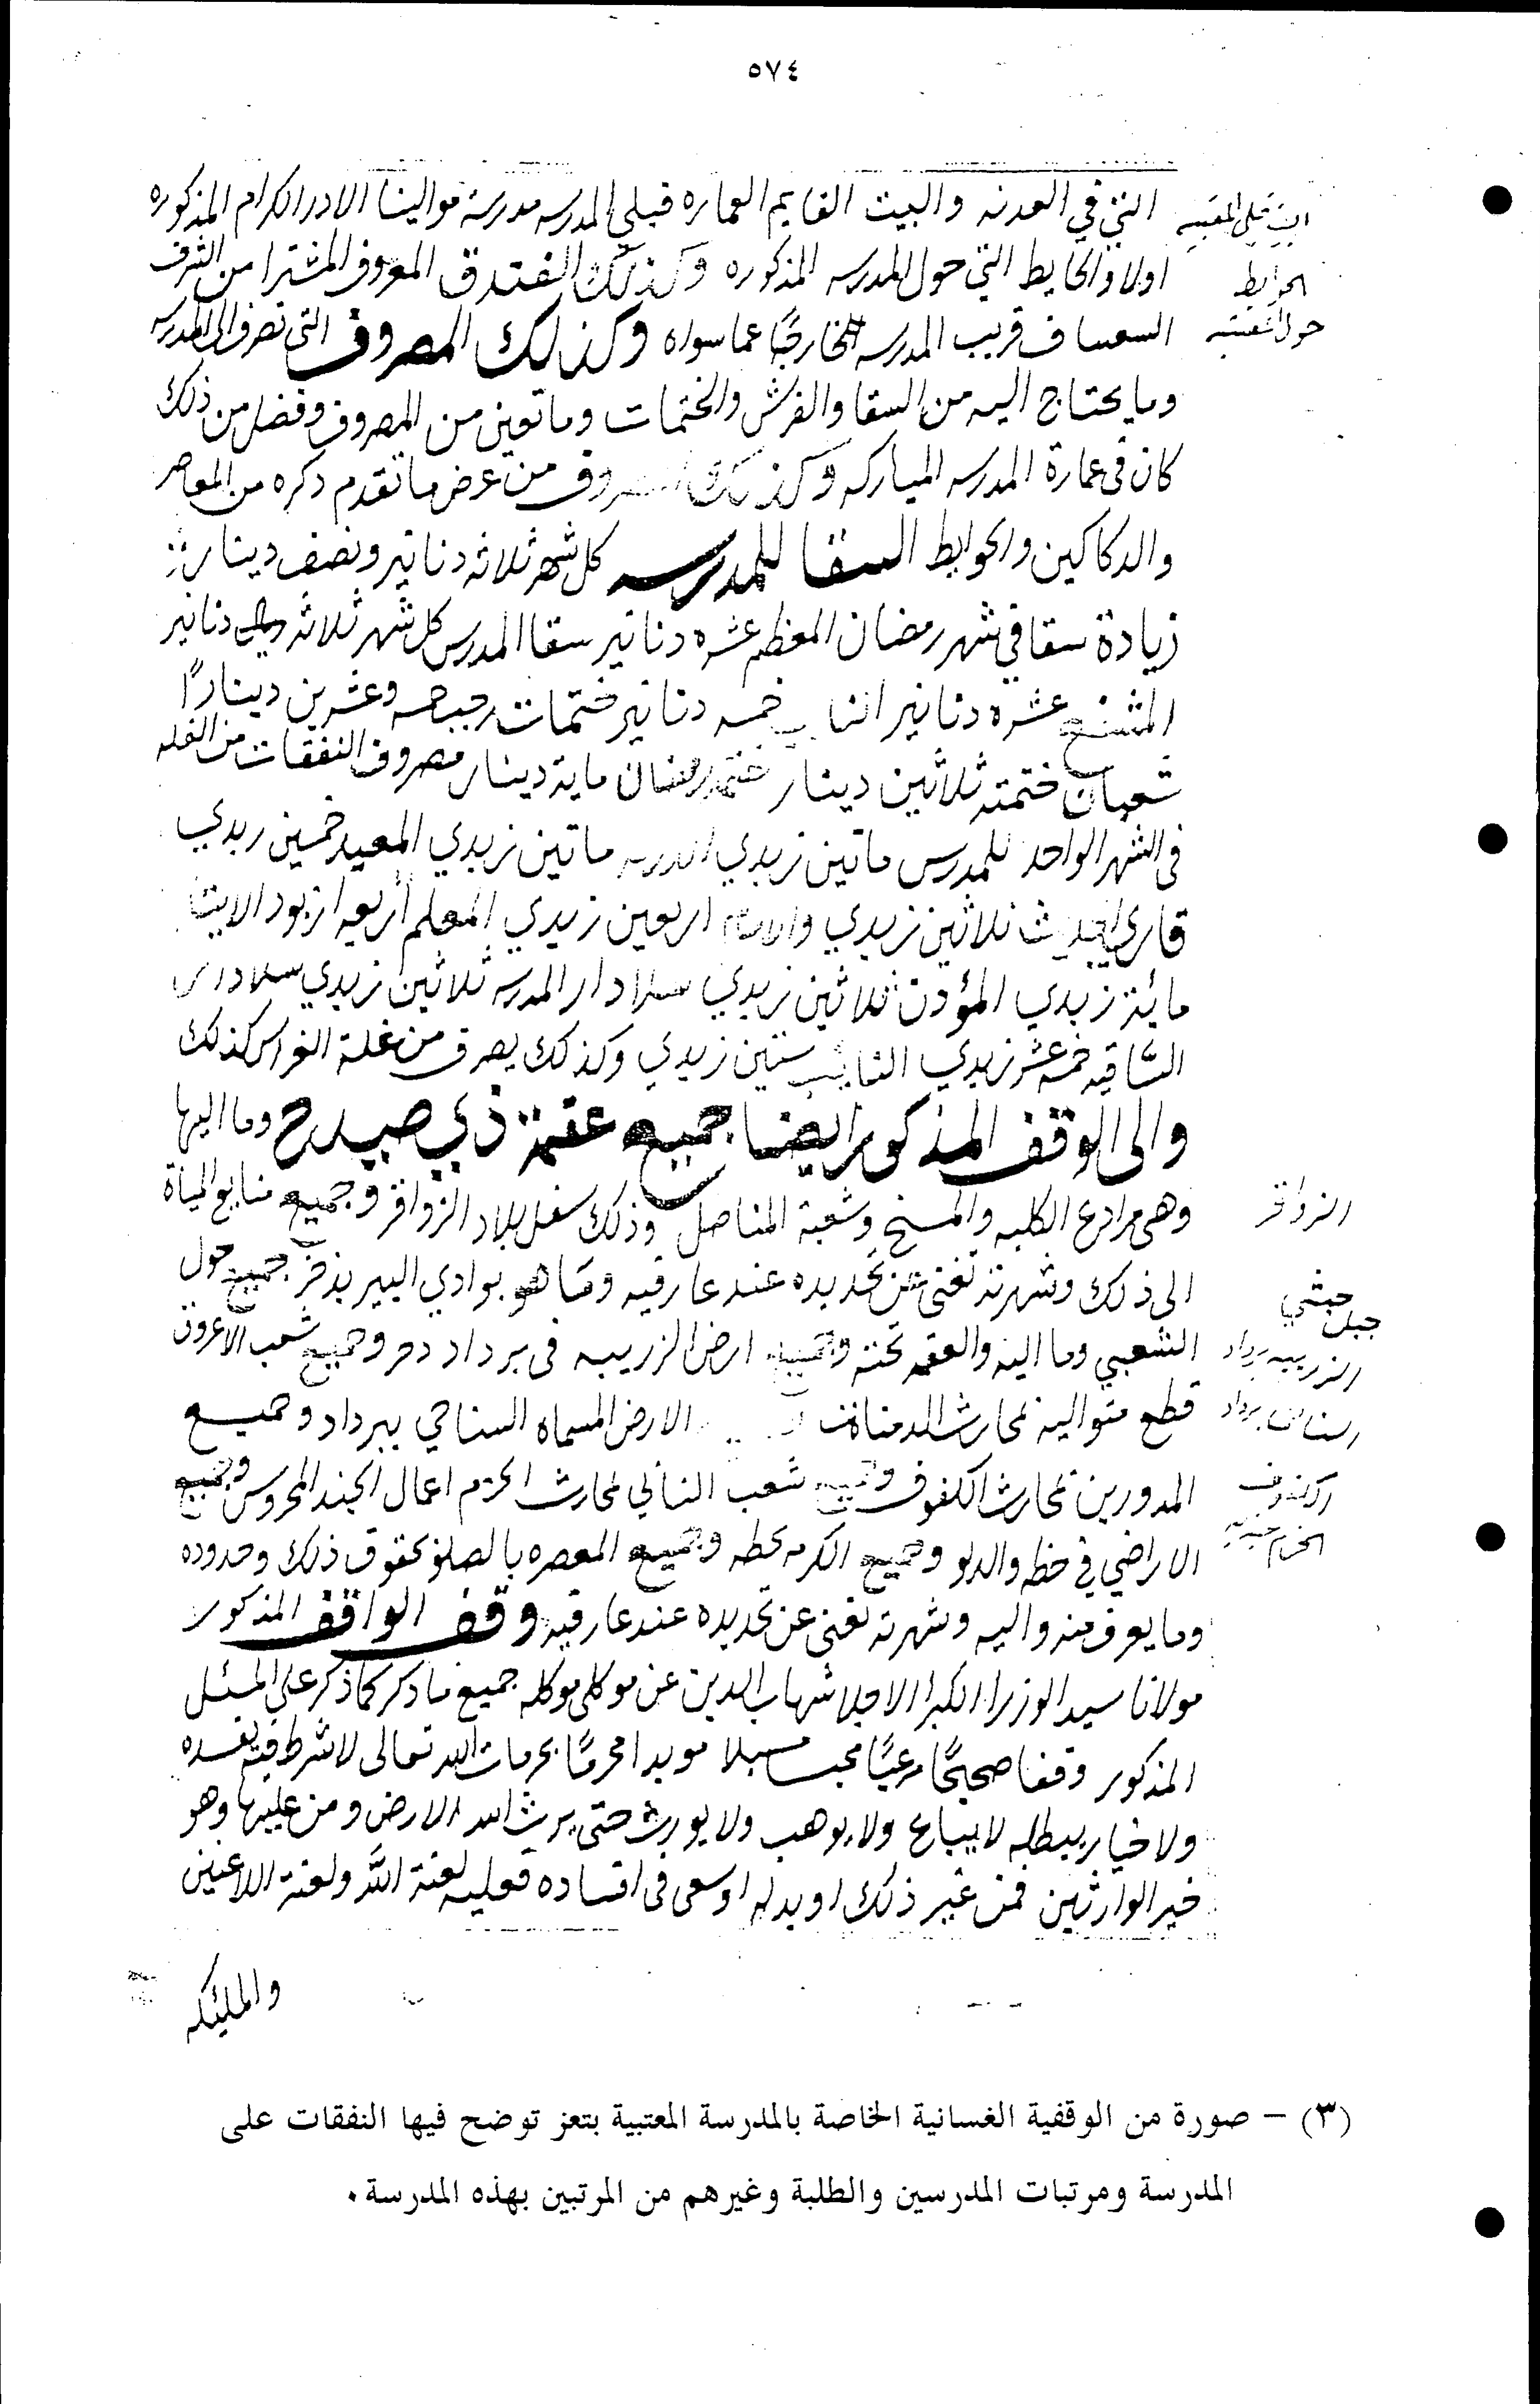 ٥٧٤
التي في العدنه والبيت القايم العماره قبلي المدرسه مدرسة موالينا الادر الكرام المذكوره
اولا والحايط التي حول المدرسه المذكوره وكذلك الفندق المعروف المشترا من الشرف
السعساف قريب المدرسه خارجًا عما سواه وكذلك المصروف التي تصرف الى المدرسه
وما يحتاج اليه من السقا والفرش والختمات وما تعين من المصروف وفضل من ذلك
كان في عمارة المدرسه المباركه وكذلك المصروف من عرض ما تقدم ذكره من المعاصر
والدكاكين والحوايط السقا للمدرسه كل شهر ثلاثه دنانير ونصف دينار
زيادة سقا في شهر رمضان المعظم عشره دنانير سقا المدرس كل شهر ثلاثه دنانير
عشره دنانير النايب خمسه دنانير ختمات رجب خمسه وعشرين دينارًا
شعبان ختمته ثلاثين دينار ختمة رمضان ماية دينار مصروف النفقات من الغله
في الشهر الواحد للمدرس ماتين زبدي ماتين زبدي المعيد خمسين زبدي
قاري الحديث ثلاثين زبدي والامام اربعين زبدي المعلم أربعه ازبود الايتام
مائة زبدي المؤذن ثلاثين زبدي دار المدرسه ثلاثين زبدي
السَّاقيه خمسه عشر زبدي النايب ستين زبدي وكذلك يصرف من غلة الغراس كذلك
والى الوقف المذكور ايضا جميع عقمة ذي صيدح وما اليها
وهي مرادع الكلبه والمسنح وشعبة المناصل وذلك سفل بلاد الزواقر وجميع منابع المياة
الزواقر
الى ذلك وشهرته تغني عن تحديده عند عارفيه وما هو بوادي البير بذخر جميع حول
جبل حبشي
الشعبي وما اليه والعقمه تحته وجميع ارض الزريبه في برداد وجميع شعب الاعروق
الزريبه برداد
قطع متواليه بمحارث الدمناة الارض المسماه السناحي ببرداد وجميع
المدورين بمحارث الكفوف وجميع شعب الناي بمحارث الحرم اعمال الجند المحروس وجميع
الاراضي في خطه والدلو وجميع الكرمه بخطه وجميع المعصره بالصلو بحقوق ذلك وحدوده
وما يعرف منه واليه وشهرته تغني عن تحديده عند عارفيه وقف الواقف المذكور
مولانا سيد الوزراء الكبرا الاجلا شهاب الدين عن موكلي موكله جميع ما ذكر كما ذكر على المسبل
المذكور وقفا صحيحًا شرعيًا محبسا مسبلا موبدا محرمًا بحرمات الله تعالى لا شرط فيه يفسده
ولا خيار يبطله لا يباع ولا يوهب ولا يورث حتى يرث الله الارض ومن عليها وهو
خير الوارثين فمن غير ذلك او بدله او سعى في افساده فعليه لعنة الله ولعنة اللاعنين
والمليكه
(٣) – صورة من الوقفية الغسانية الخاصة بالمدرسة المعتبية بتعز توضح فيها النفقات على
المدرسة ومرتبات المدرسين والطلبة وغيرهم من المرتبين بهذه المدرسة.